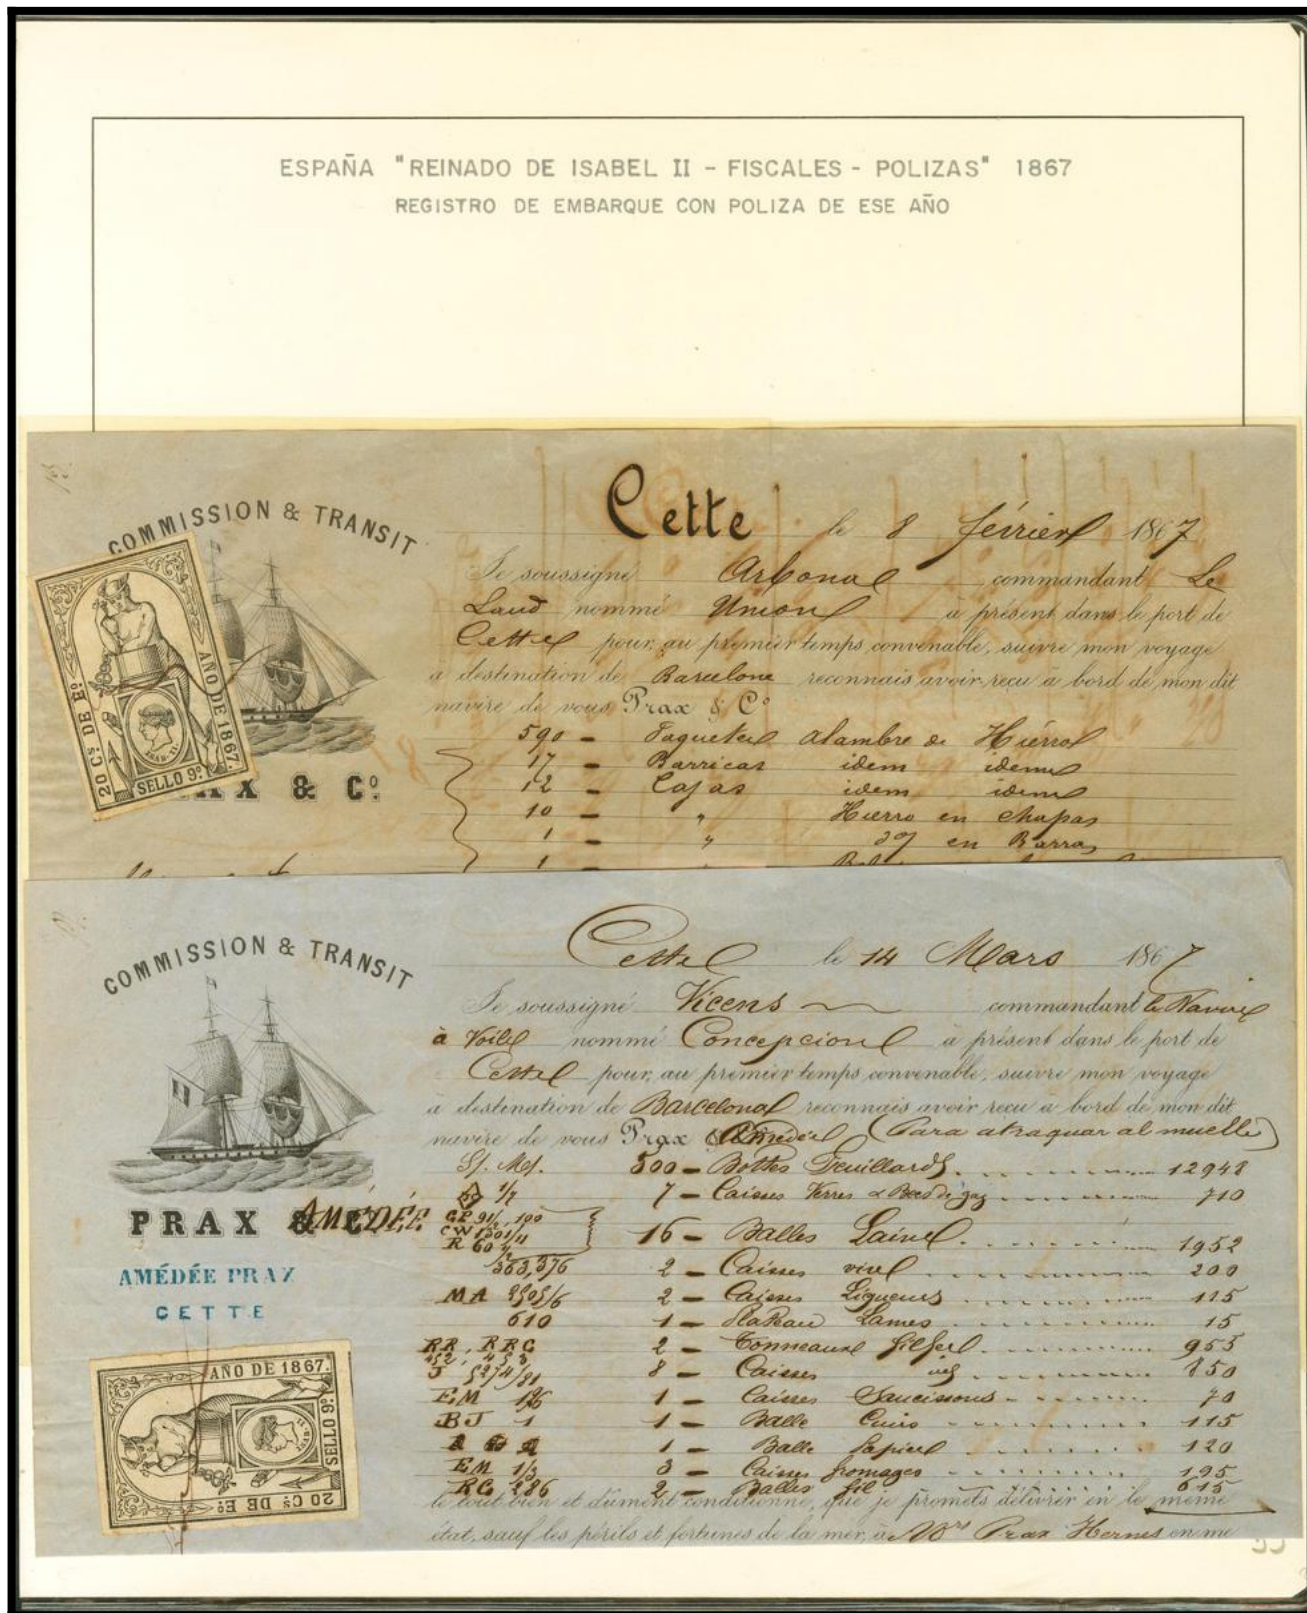 ESPAÑA "REINADO DE ISABEL II - FISCALES - POLIZAS" 1867
REGISTRO DE EMBARQUE CON POLIZA DE ESE AÑO
COMMISSION & TRANSIT
AÑO DE 1867.
20 Cs DE Eo
SELLO 9º
AX & Cº
Cette le 8 février 1867
Je soussigné Arbona commandant Le
Laud nommé Union à présent dans le port de
Cette pour, au premier temps convenable, suivre mon voyage
à destination de Barcelone reconnais avoir reçu à bord de mon dit
navire de vous Prax & Cº
590 - Paquetes alambre de Hierro
17 - Barricas idem idem
12 - Cajas idem idem
10 - " Hierro en chapas
1 - " dº en Barras
1 -
COMMISSION & TRANSIT
PRAX & Cº AMÉDÉE
AMÉDÉE PRAX
CETTE
AÑO DE 1867.
SELLO 9º
20 Cs DE Eo
Cette le 14 Mars 1867
Je soussigné Vicens commandant le Navire
à Voile nommé Concepcion à présent dans le port de
Cette pour, au premier temps convenable, suivre mon voyage
à destination de Barcelona reconnais avoir reçu à bord de mon dit
navire de vous Prax Amédée (Para atraquar al muelle)
500 - Bottes Feuillards 12948
1/7 7 - Caisses Verres & Becs de gaz 710
GP 91/100
R 60 16 - Balles Laine 1952
363,376 2 - Caisses 200
MA 2 - Caisses Liqueurs 115
610 1 - Plateau Lames 15
RR, RRC 2 - Tonneaux fil fer 955
J 8 - Caisses 850
EM 1 - Caisses Saucissons 70
BJ 1 1 - Balle Cuirs 115
1 - Balle Papier 120
EM 1/3 3 - Caisses fromages 195
RC 286 2 - Balles fil 615
le tout bien et dûment conditionné, que je promets délivrer en le même
état, sauf les périls et fortunes de la mer, à Mrs Prax Hernes en me